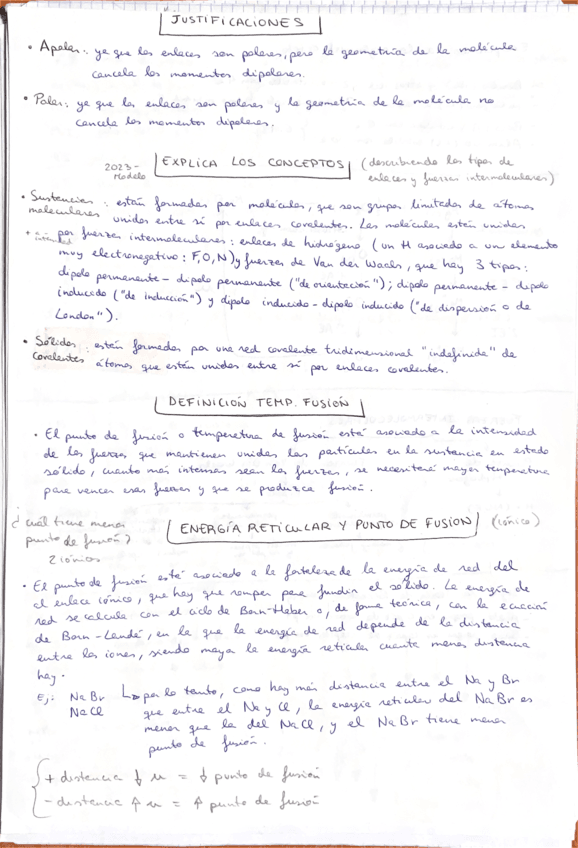 JUSTIFICACIONES
• Apolar: ya que los enlaces son polares, pero la geometría de la molécula
cancela los momentos dipolares.
• Polar: ya que los enlaces son polares y la geometría de la molécula no
cancela los momentos dipolares.
2023-
Modelo
EXPLICA LOS CONCEPTOS (describiendo los tipos de
enlaces y fuerzas intermoleculares)
• Sustancias moleculares: están formadas por moléculas, que son grupos limitados de átomos
unidos entre sí por enlaces covalentes. Las moléculas están unidas
por fuerzas intermoleculares: enlaces de hidrógeno (un H asociado a un elemento
muy electronegativo: F, O, N) y fuerzas de Van der Waals, que hay 3 tipos:
dipolo permanente - dipolo permanente ("de orientación"); dipolo permanente - dipolo
inducido ("de inducción") y dipolo inducido - dipolo inducido ("de dispersión o de
London").
• Sólidos covalentes: están formados por una red covalente tridimensional "indefinida" de
átomos que están unidos entre sí por enlaces covalentes.
DEFINICIÓN TEMP. FUSIÓN
• El punto de fusión o temperatura de fusión está asociado a la intensidad
de las fuerzas que mantienen unidas las partículas en la sustancia en estado
sólido, cuanto más intensas sean las fuerzas, se necesitará mayor temperatura
para vencer esas fuerzas y que se produzca fusión.
¿cuál tiene menor
punto de fusión?
2 iónicos
ENERGÍA RETICULAR Y PUNTO DE FUSIÓN (iónico)
• El punto de fusión está asociado a la fortaleza de la energía de red del
el enlace iónico, que hay que romper para fundir el sólido. La energía de
red se calcula con el ciclo de Born-Haber o, de forma teórica, con la ecuación
de Born-Landé, en la que la energía de red depende de la distancia
entre los iones, siendo mayor la energía reticular cuanta menos distancia
hay.
Ej: NaBr
NaCl
↳ por lo tanto, como hay más distancia entre el Na y Br
que entre el Na y Cl, la energía reticular del NaBr es
menor que la del NaCl, y el NaBr tiene menor
punto de fusión.
+ distancia ↓ u = ↓ punto de fusión
- distancia ↑ u = ↑ punto de fusión